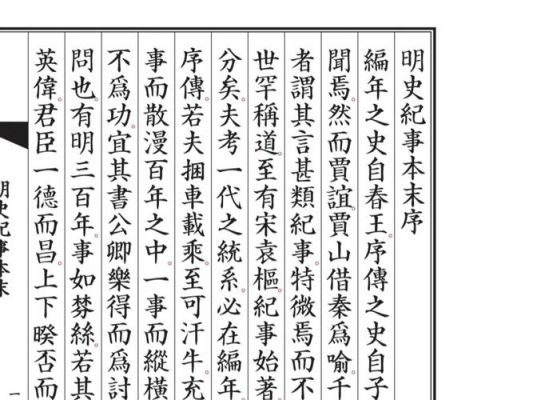 明史紀事本末序
編年之史自春王。序傳之史自子
聞焉。然而賈誼。賈山借秦爲喻。千
者謂其言甚類紀事。特微焉而不
世罕稱道。至有宋袁樞。紀事始著
分矣。夫考一代之統系。必在編年。
序傳。若夫捆車載乘。至可汗牛充
事而散漫百年之中。一事而縱橫
不爲功。宜其書公卿樂得而爲討
問也。有明三百年。事如棼絲。若其
英偉。君臣一德而昌。上下暌否而
明史紀事本末
一